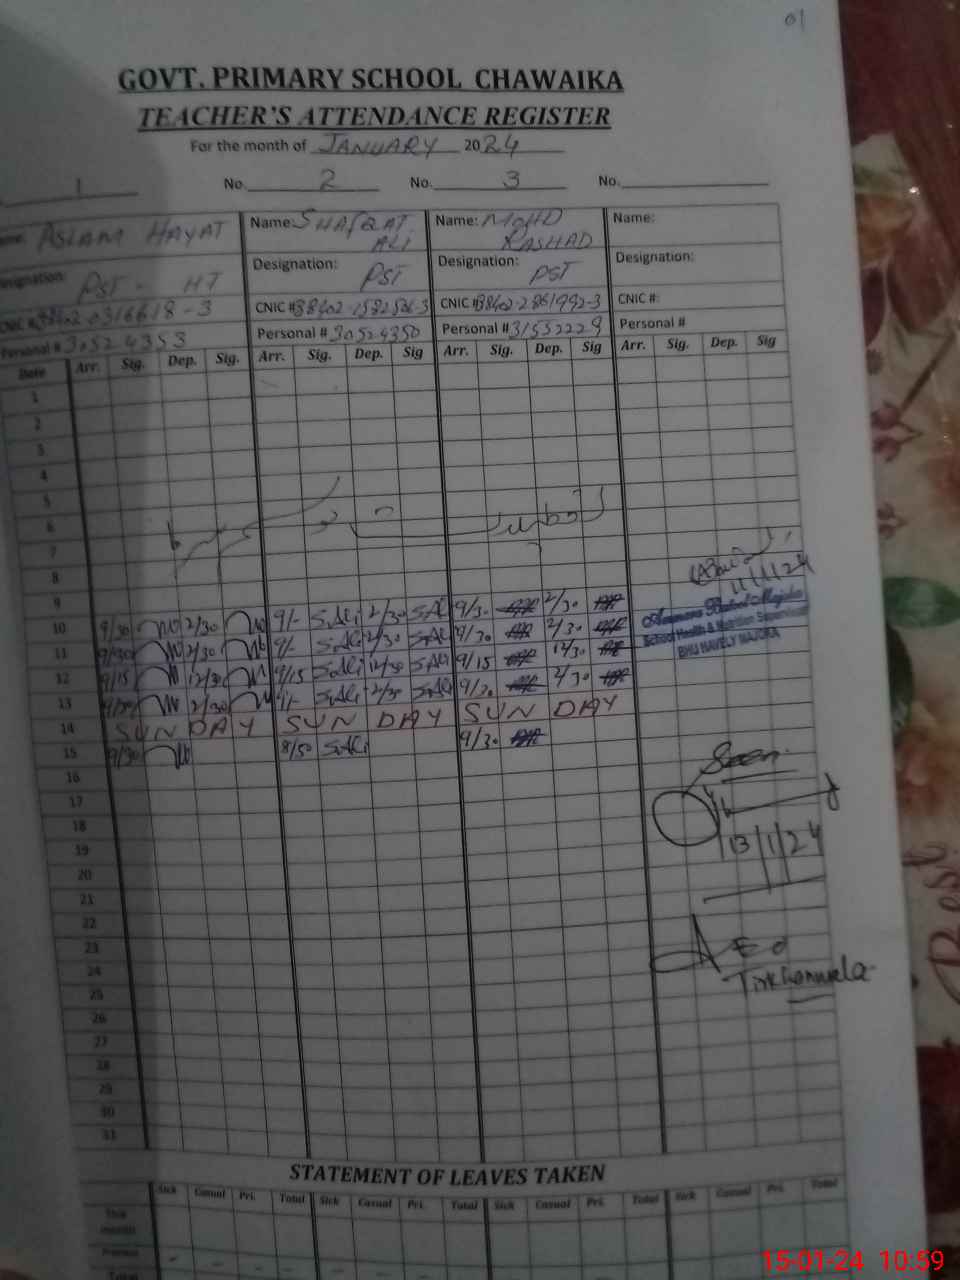 01
GOVT. PRIMARY SCHOOL CHAWAIKA
TEACHER'S ATTENDANCE REGISTER
For the month of JANUARY 2024
1 No. 2 No. 3 No.
ASLAM HAYAT Name: SHAFQAT ALI Name: MOHD RASHAD Name:
Designation: PST - HT Designation: PST Designation: PST Designation:
CNIC # 38402-0316618-3 CNIC # CNIC # 38402-2861992-3 CNIC #:
Personal # 30524353 Personal # 30524350 Personal # 31552229 Personal #
Date Arr. Sig. Dep. Sig. Arr. Sig. Dep. Sig Arr. Sig. Dep. Sig Arr. Sig. Dep. Sig
1
2
3
4
5
6
7
8
9
11/1/24
10 9/30 2/30 9/- S.Ali 2/30 S.Ali 9/30 2/30
School Health & Nutrition Supervisor
BHU HAVELY MAJOKA
11 9/30 2/30 9/- S.Ali 2/30 S.Ali 9/30 2/30
12 9/15 12/30 9/15 S.Ali 12/30 S.Ali 9/15 12/30
13 9/30 2/30 9/- S.Ali 2/30 S.Ali 9/30 2/30
14 SUN DAY SUN DAY SUN DAY
15 9/30 8/50 S.Ali 9/30
Seen
16
17
18
13/1/24
19
20
21
22
23
24
25
26
27
28
29
30
31
STATEMENT OF LEAVES TAKEN
Sick Casual Pri. Total Sick Casual Pri. Total Sick Casual Pri. Total Sick Casual Pri. Total
This month
Total
Best
15-01-24 10:59